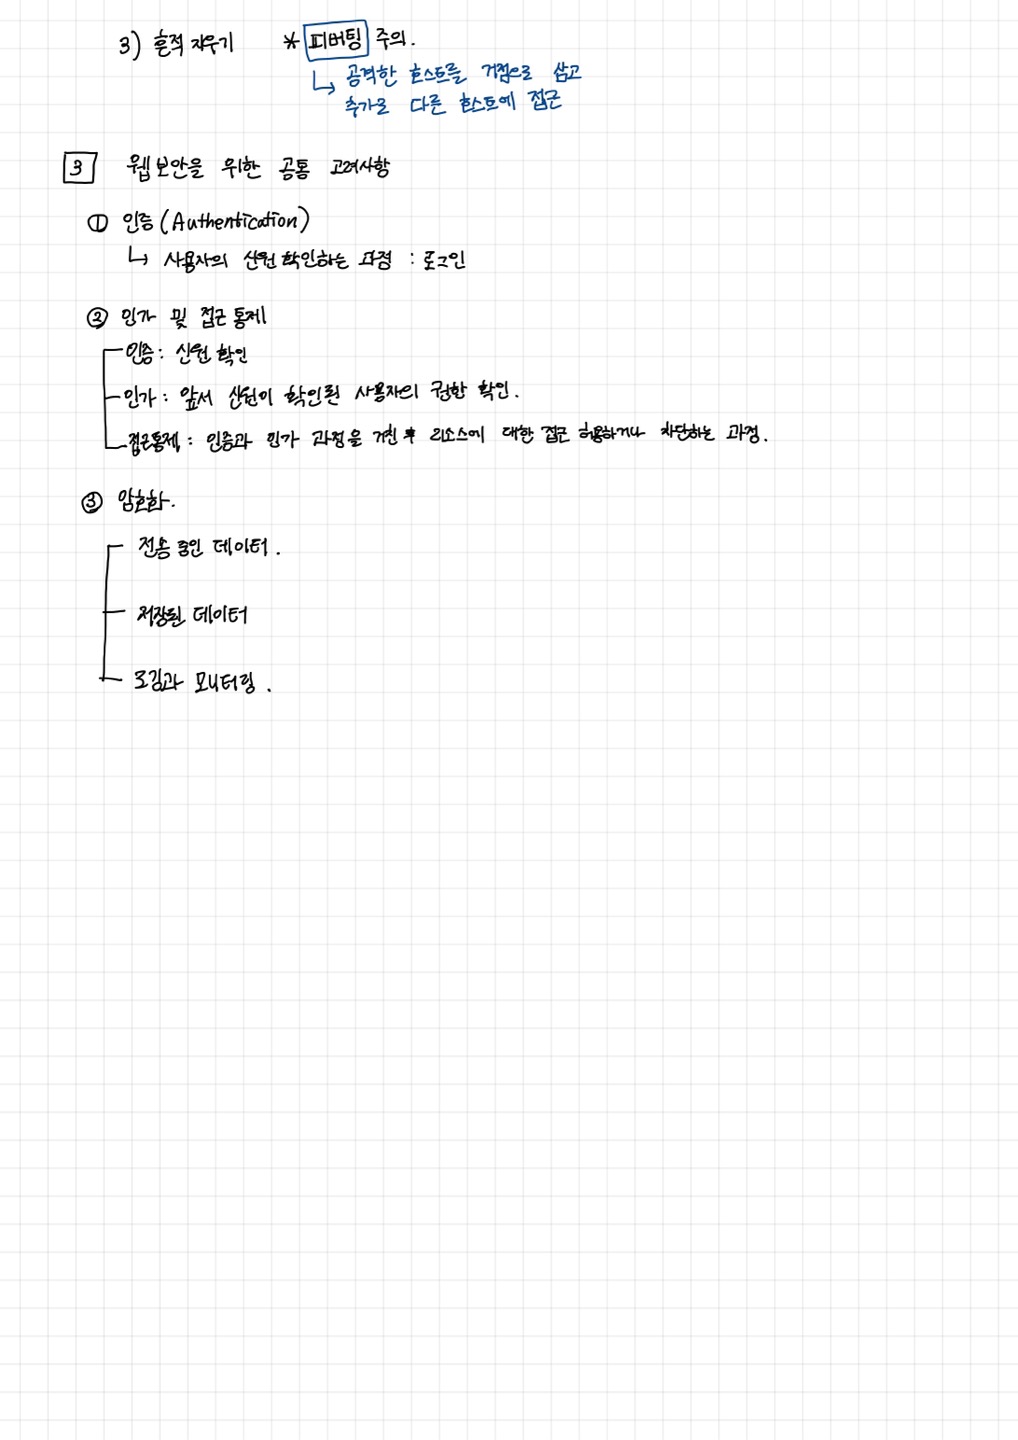 3) 흔적 지우기 * 피버팅 주의.
↳ 공격한 호스트를 거점으로 삼고
추가로 다른 호스트에 접근
3 웹 보안을 위한 공통 고려사항
① 인증 (Authentication)
↳ 사용자의 신원 확인하는 과정 : 로그인
② 인가 및 접근 통제
인증 : 신원 확인
인가 : 앞서 신원이 확인된 사용자의 권한 확인.
접근통제 : 인증과 인가 과정을 거친 후 리소스에 대한 접근 허용하거나 차단하는 과정.
③ 암호화.
전송 중인 데이터.
저장된 데이터
로깅과 모니터링.